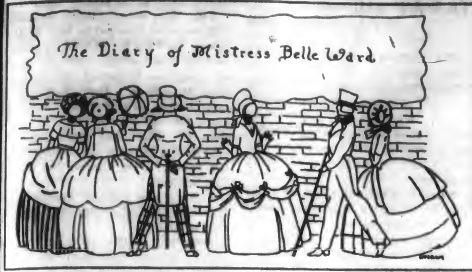 The Diary of Mistress Belle Ward